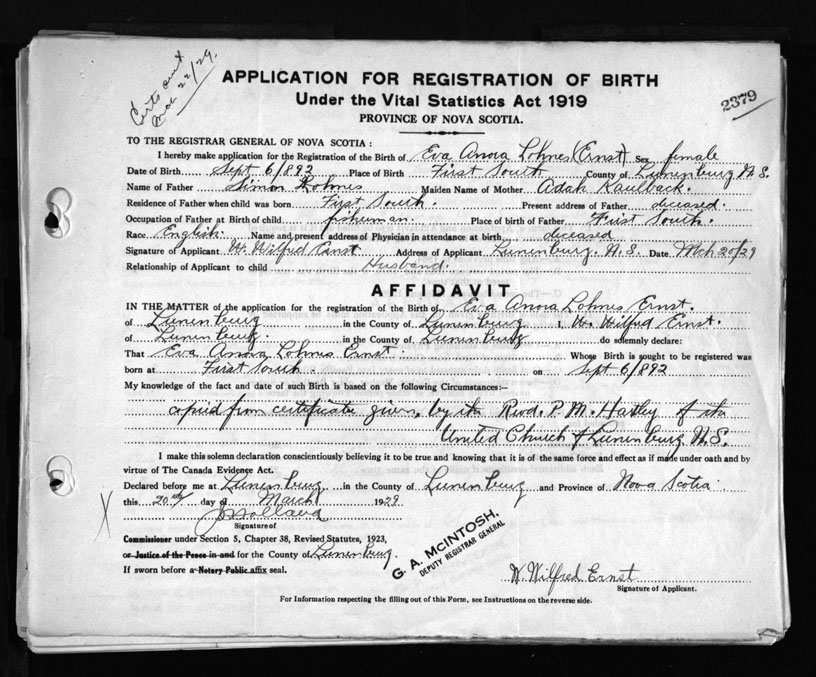 Certs sent
Mch 22/29.
APPLICATION FOR REGISTRATION OF BIRTH
Under the Vital Statistics Act 1919
PROVINCE OF NOVA SCOTIA.
2379
TO THE REGISTRAR GENERAL OF NOVA SCOTIA:
I hereby make application for the Registration of the Birth of Eva Anora Lohnes (Ernst) Sex female
Date of Birth Sept 6/892 Place of Birth First South County of Lunenburg N.S.
Name of Father Simon Lohnes Maiden Name of Mother Adah Kaulback.
Residence of Father when child was born First South. Present address of Father diceased.
Occupation of Father at Birth of child fisherman. Place of birth of Father First South.
Race English. Name and present address of Physician in attendance at birth diceased
Signature of Applicant W. Wilfred Ernst Address of Applicant Lunenburg. N.S. Date Mch 20/29
Relationship of Applicant to child Husband.
AFFIDAVIT
IN THE MATTER of the application for the registration of the Birth of Eva Anora Lohnes Ernst.
of Lunenburg in the County of Lunenburg I, W. Wilfred Ernst.
of Lunenburg. in the County of Lunenburg do solemnly declare:
That Eva Anora Lohnes Ernst. Whose Birth is sought to be registered was
born at First South. on Sept 6/892
My knowledge of the fact and date of such Birth is based on the following Circumstances:—
copied from certificate given by the Revd. P. M. Hartley of the
United Church of Lunenburg N.S.
I make this solemn declaration conscientiously believing it to be true and knowing that it is of the same force and effect as if made under oath and by
virtue of The Canada Evidence Act.
Declared before me at Lunenburg in the County of Lunenburg and Province of Nova Scotia.
this 20th day of March 1929
X
Holland
Signature of
Commissioner under Section 5, Chapter 38, Revised Statutes, 1923,
or Justice of the Peace in and for the County of Lunenburg.
If sworn before a Notary Public affix seal.
G. A. McINTOSH,
DEPUTY REGISTRAR GENERAL
W. Wilfred Ernst
Signature of Applicant.
For Information respecting the filling out of this Form, see Instructions on the reverse side.